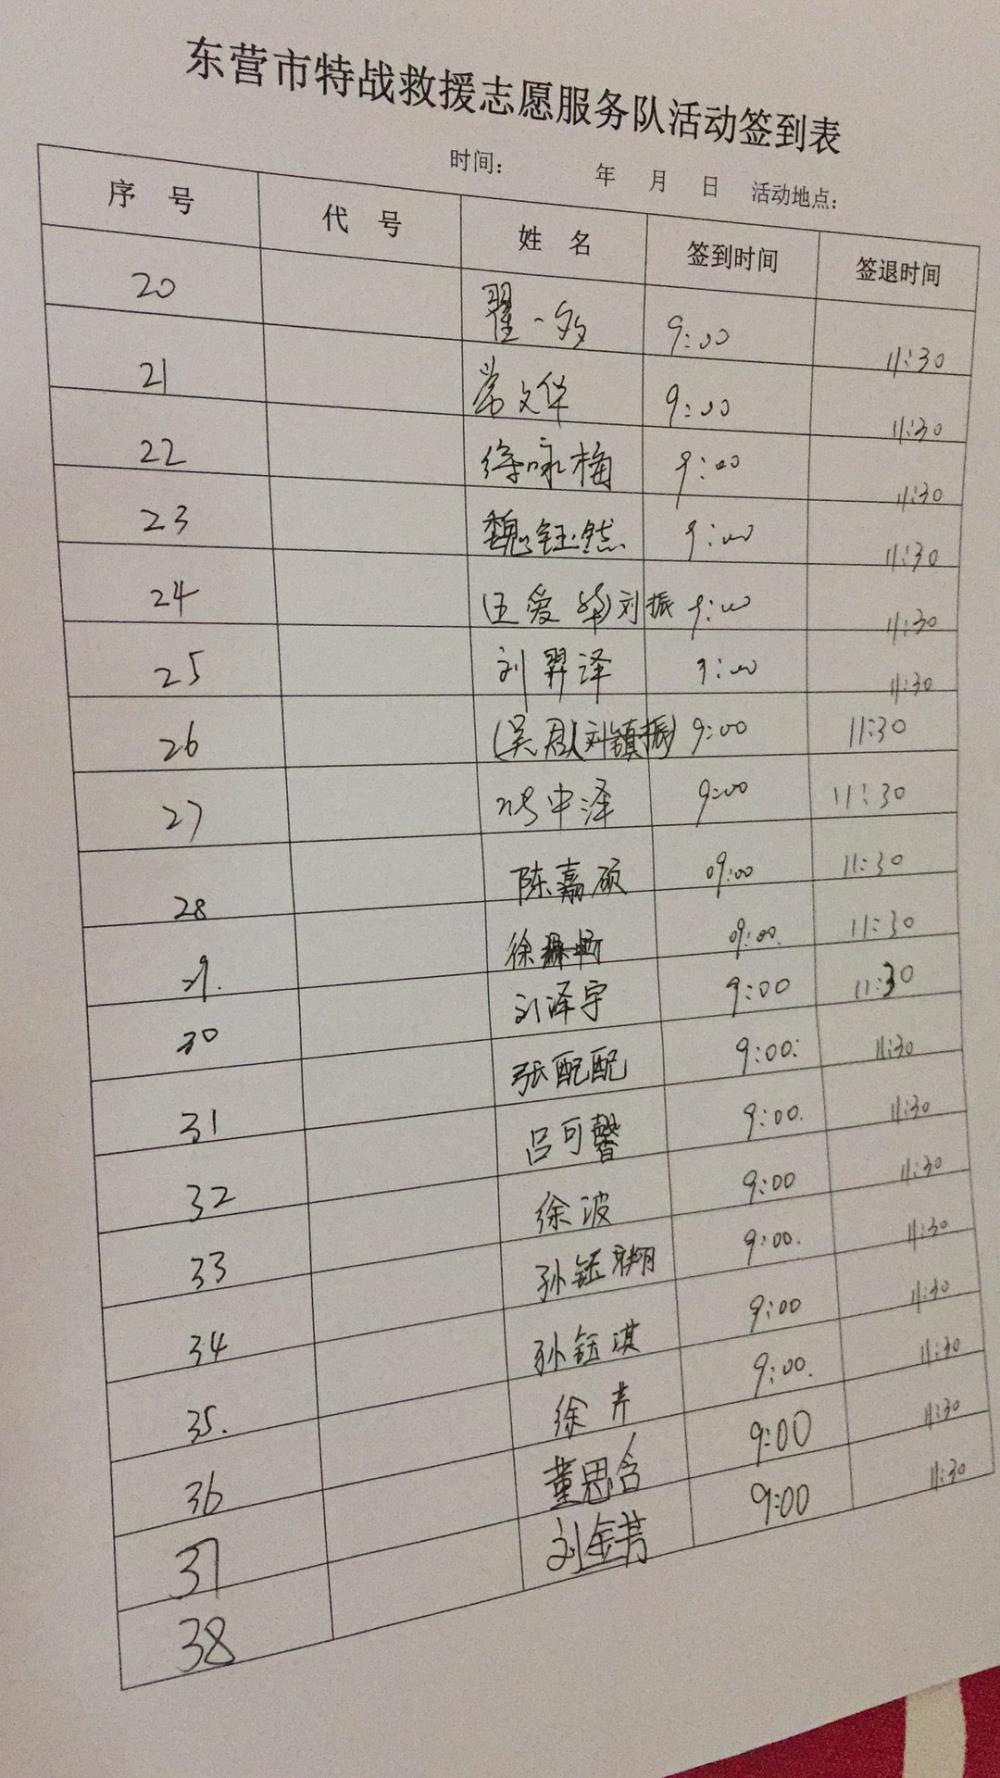 东营市特战救援志愿服务队活动签到表
时间: 年 月 日 活动地点:
序 号 代 号 姓 名 签到时间 签退时间
20 翟一多 9:00 11:30
21 常文华 9:00 11:30
22 徐咏梅 9:00 11:30
23 魏钰然 9:00 11:30
24 (王爱华)刘振 9:00 11:30
25 刘羿泽 9:00 11:30
26 (吴君(刘镇振) 9:00 11:30
27 中泽 9:00 11:30
28 陈嘉硕 09:00 11:30
29. 徐 09:00. 11:30
30 刘泽宇 9:00 11:30
31 张配配 9:00: 11:30
32 吕可馨 9:00. 11:30
33 徐波 9:00 11:30
34 孙钰翔 9:00. 11:30
35. 孙钰淇 9:00 11:30
36 徐卉 9:00. 11:30
37 董思含 9:00 11:30
38 刘金芳 9:00 11:30